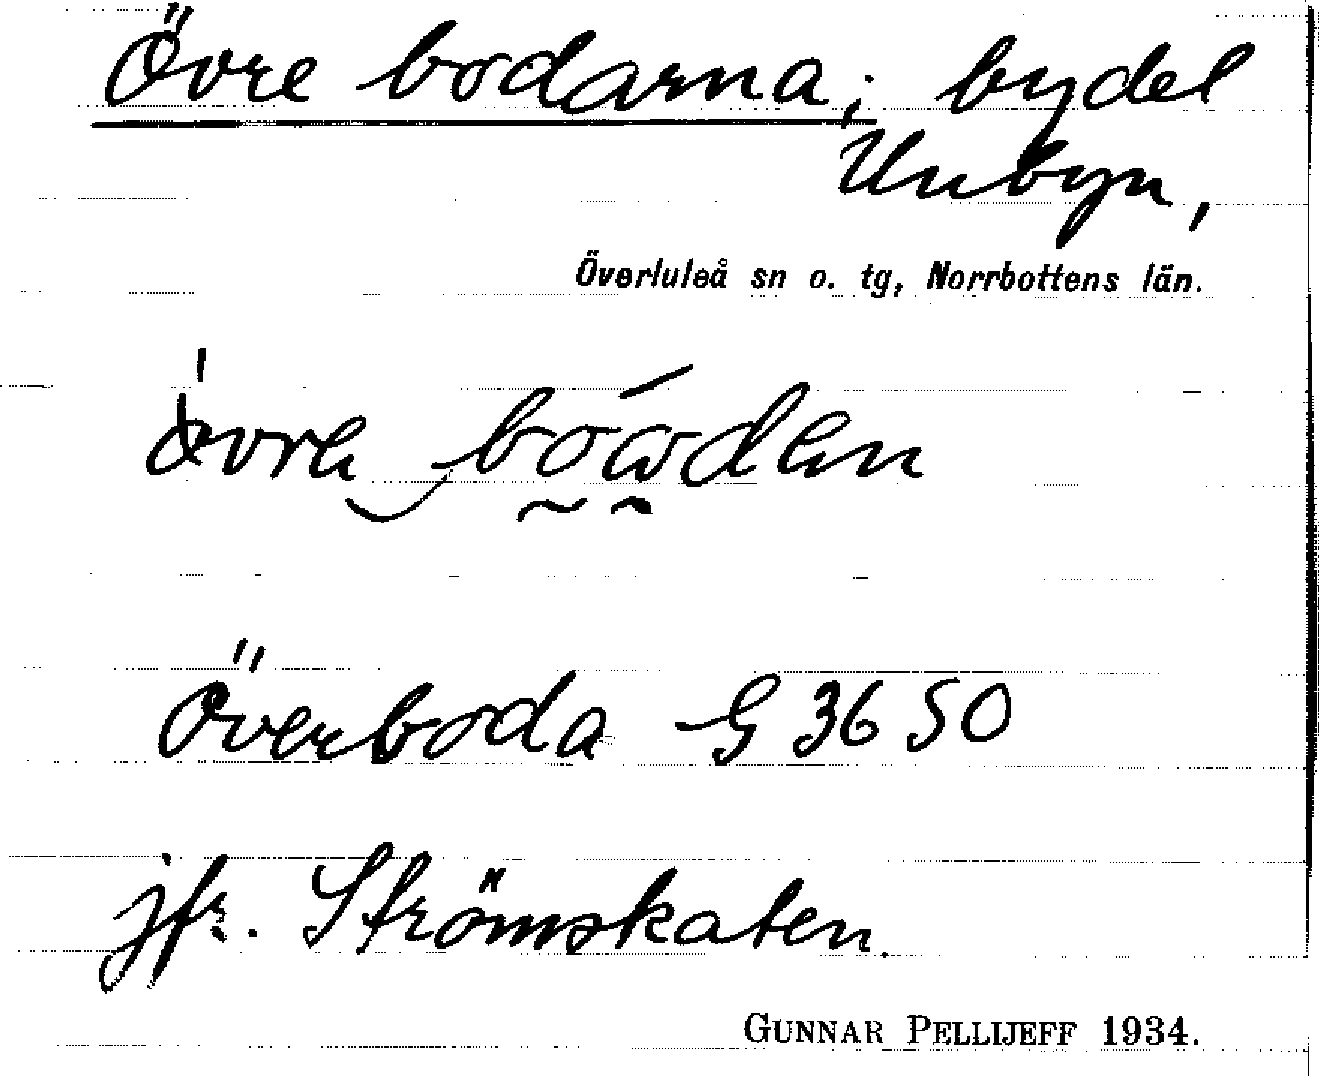 Övre bodarna; bydel
Unbyn,
Överluleå sn o. tg, Norrbottens län.
Överboda G 36 50
jfr. Strömskaten.
GUNNAR PELLIJEFF 1934.